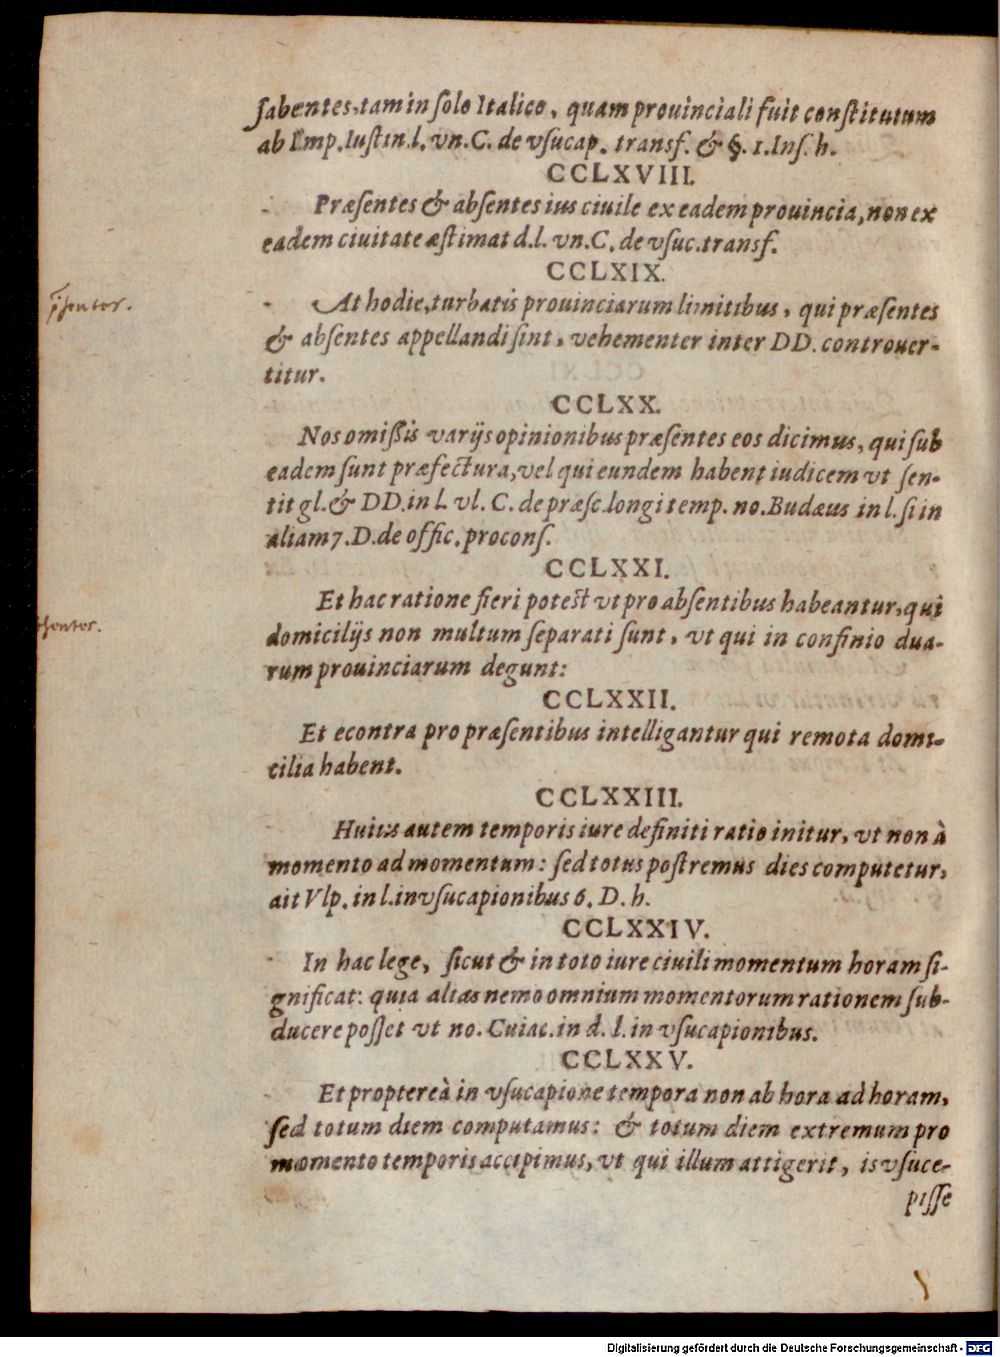 sabentes, tam in solo Italico, quam prouinciali fuit constitutum
ab Imp. Iustin. l. vn. C. de vsucap. transf. & §. 1. Ins. h.
CCLXVIII.
Præsentes & absentes ius ciuile ex eadem prouincia, non ex
eadem ciuitate æstimat d. l. vn. C. de vsuc. transf.
CCLXIX.
At hodie, turbatis prouinciarum limitibus, qui præsentes
& absentes appellandi sint, vehementer inter DD. controuer-
titur.
CCLXX.
Nos omißis varijs opinionibus præsentes eos dicimus, qui sub
eadem sunt præfectura, vel qui eundem habent iudicem vt sen-
tit gl. & DD. in l. vl. C. de præsc. longi temp. no. Budæus in l. si in
aliam 7. D. de offic. procons.
CCLXXI.
Et hac ratione fieri potest vt pro absentibus habeantur, qui
domicilijs non multum separati sunt, vt qui in confinio dua-
rum prouinciarum degunt:
CCLXXII.
Et econtra pro præsentibus intelligantur qui remota domi-
cilia habent.
CCLXXIII.
Huius autem temporis iure definiti ratio initur, vt non à
momento ad momentum: sed totus postremus dies computetur,
ait Vlp. in l. in vsucapionibus 6. D. h.
CCLXXIV.
In hac lege, sicut & in toto iure ciuili momentum horam si-
gnificat: quia alias nemo omnium momentorum rationem sub-
ducere posset vt no. Cuiac. in d. l. in vsucapionibus.
CCLXXV.
Et propterea in vsucapione tempora non ab hora ad horam,
sed totum diem computamus: & totum diem extremum pro
momento temporis accipimus, vt qui illum attigerit, is vsuce-
pisse
Digitalisierung gefördert durch die Deutsche Forschungsgemeinschaft - DFG